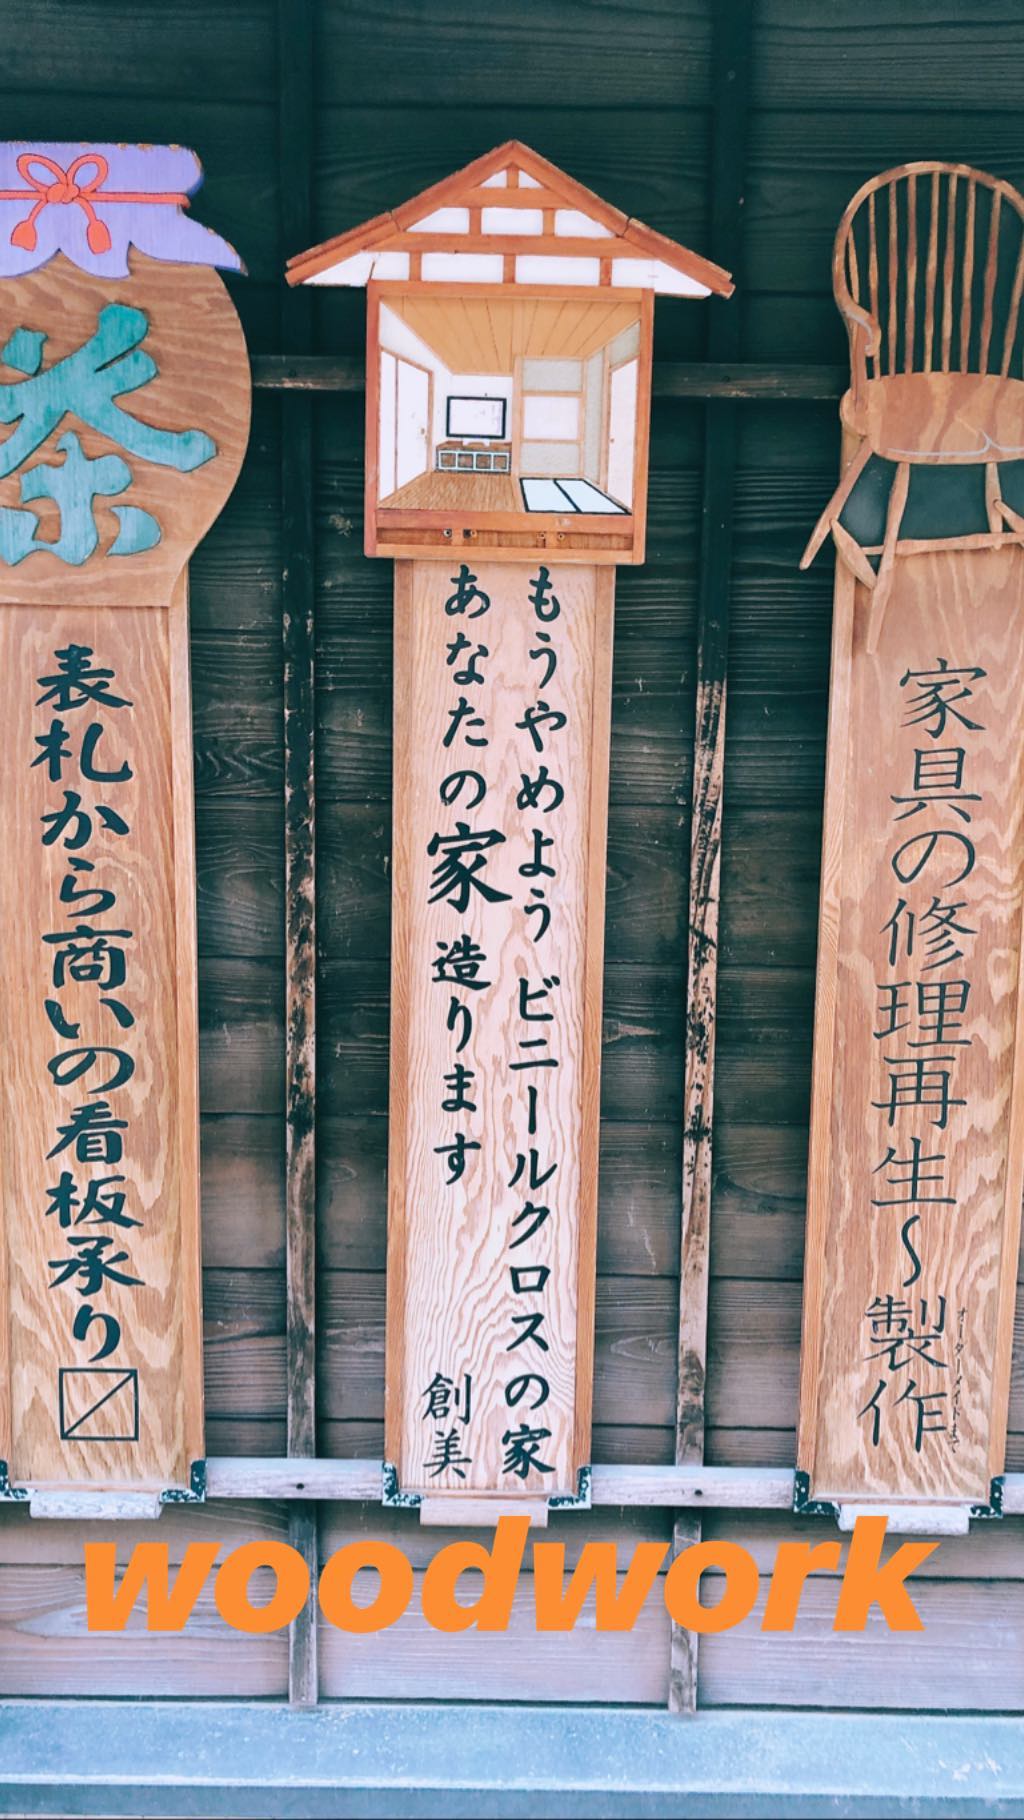 家具の修理再生〜製作
オーダーメイドまで
もうやめよう ビニールクロスの家
あなたの家造ります 創美
茶
表札から商いの看板承り〼
woodwork